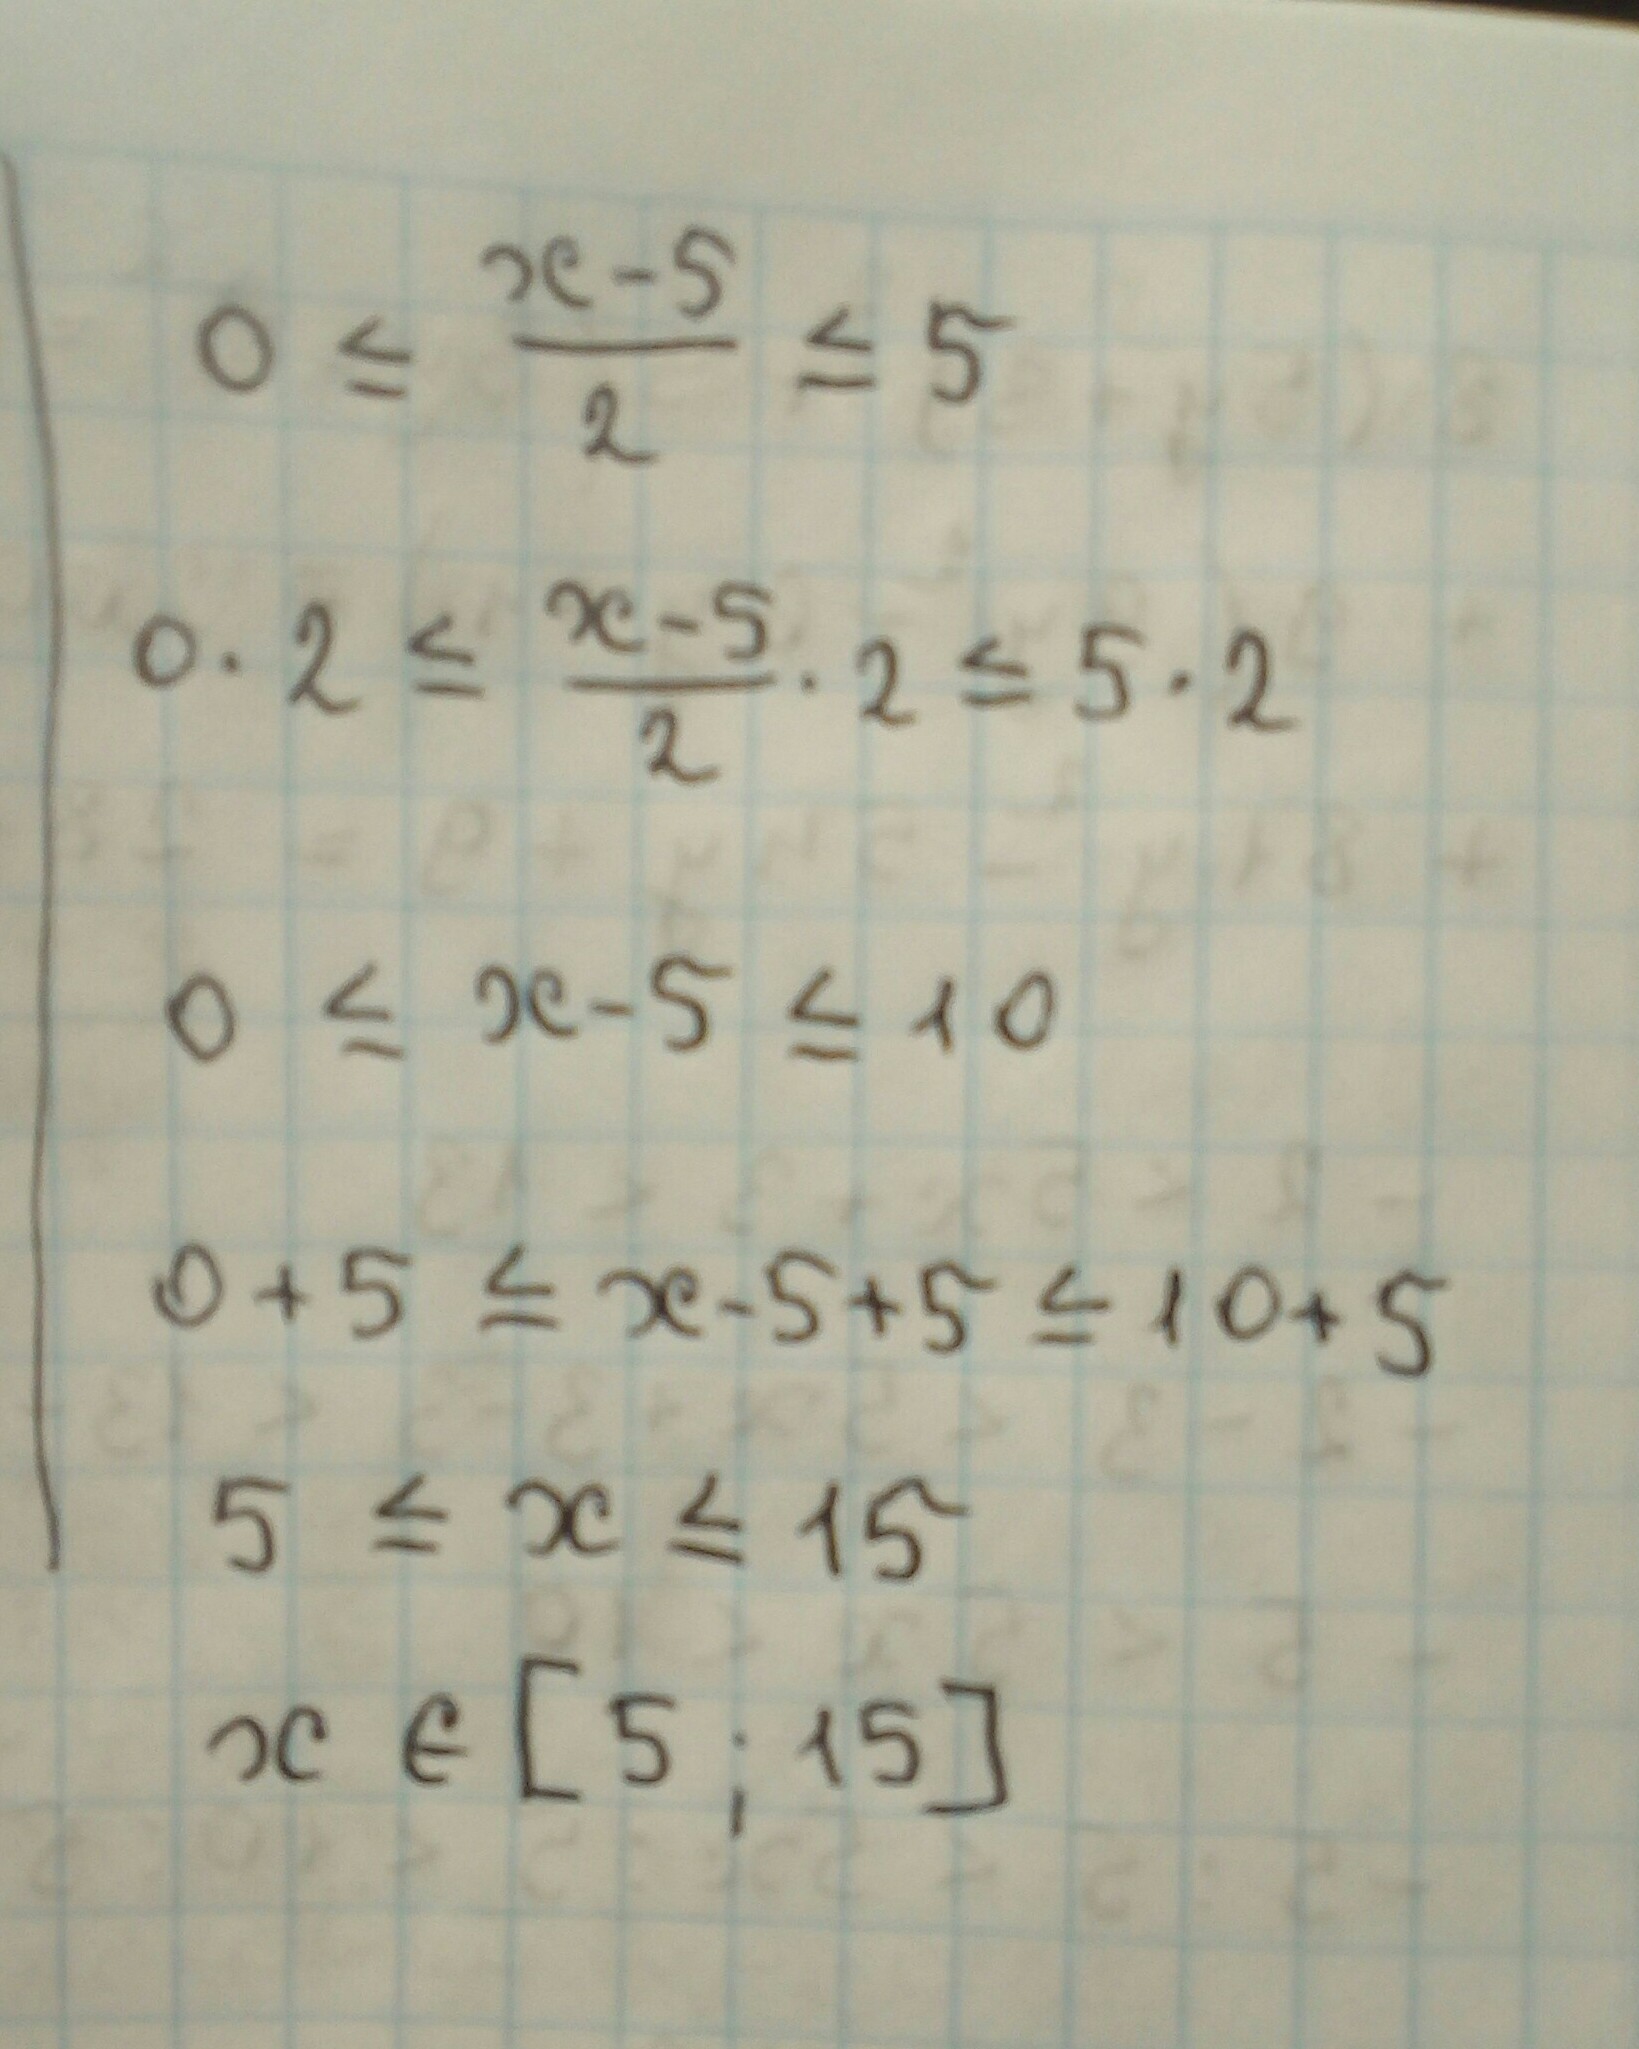 0 ≤ (x-5)/2 ≤ 5
0 · 2 ≤ (x-5)/2 · 2 ≤ 5 · 2
0 ≤ x-5 ≤ 10
0+5 ≤ x-5+5 ≤ 10+5
5 ≤ x ≤ 15
x ∈ [5 ; 15]